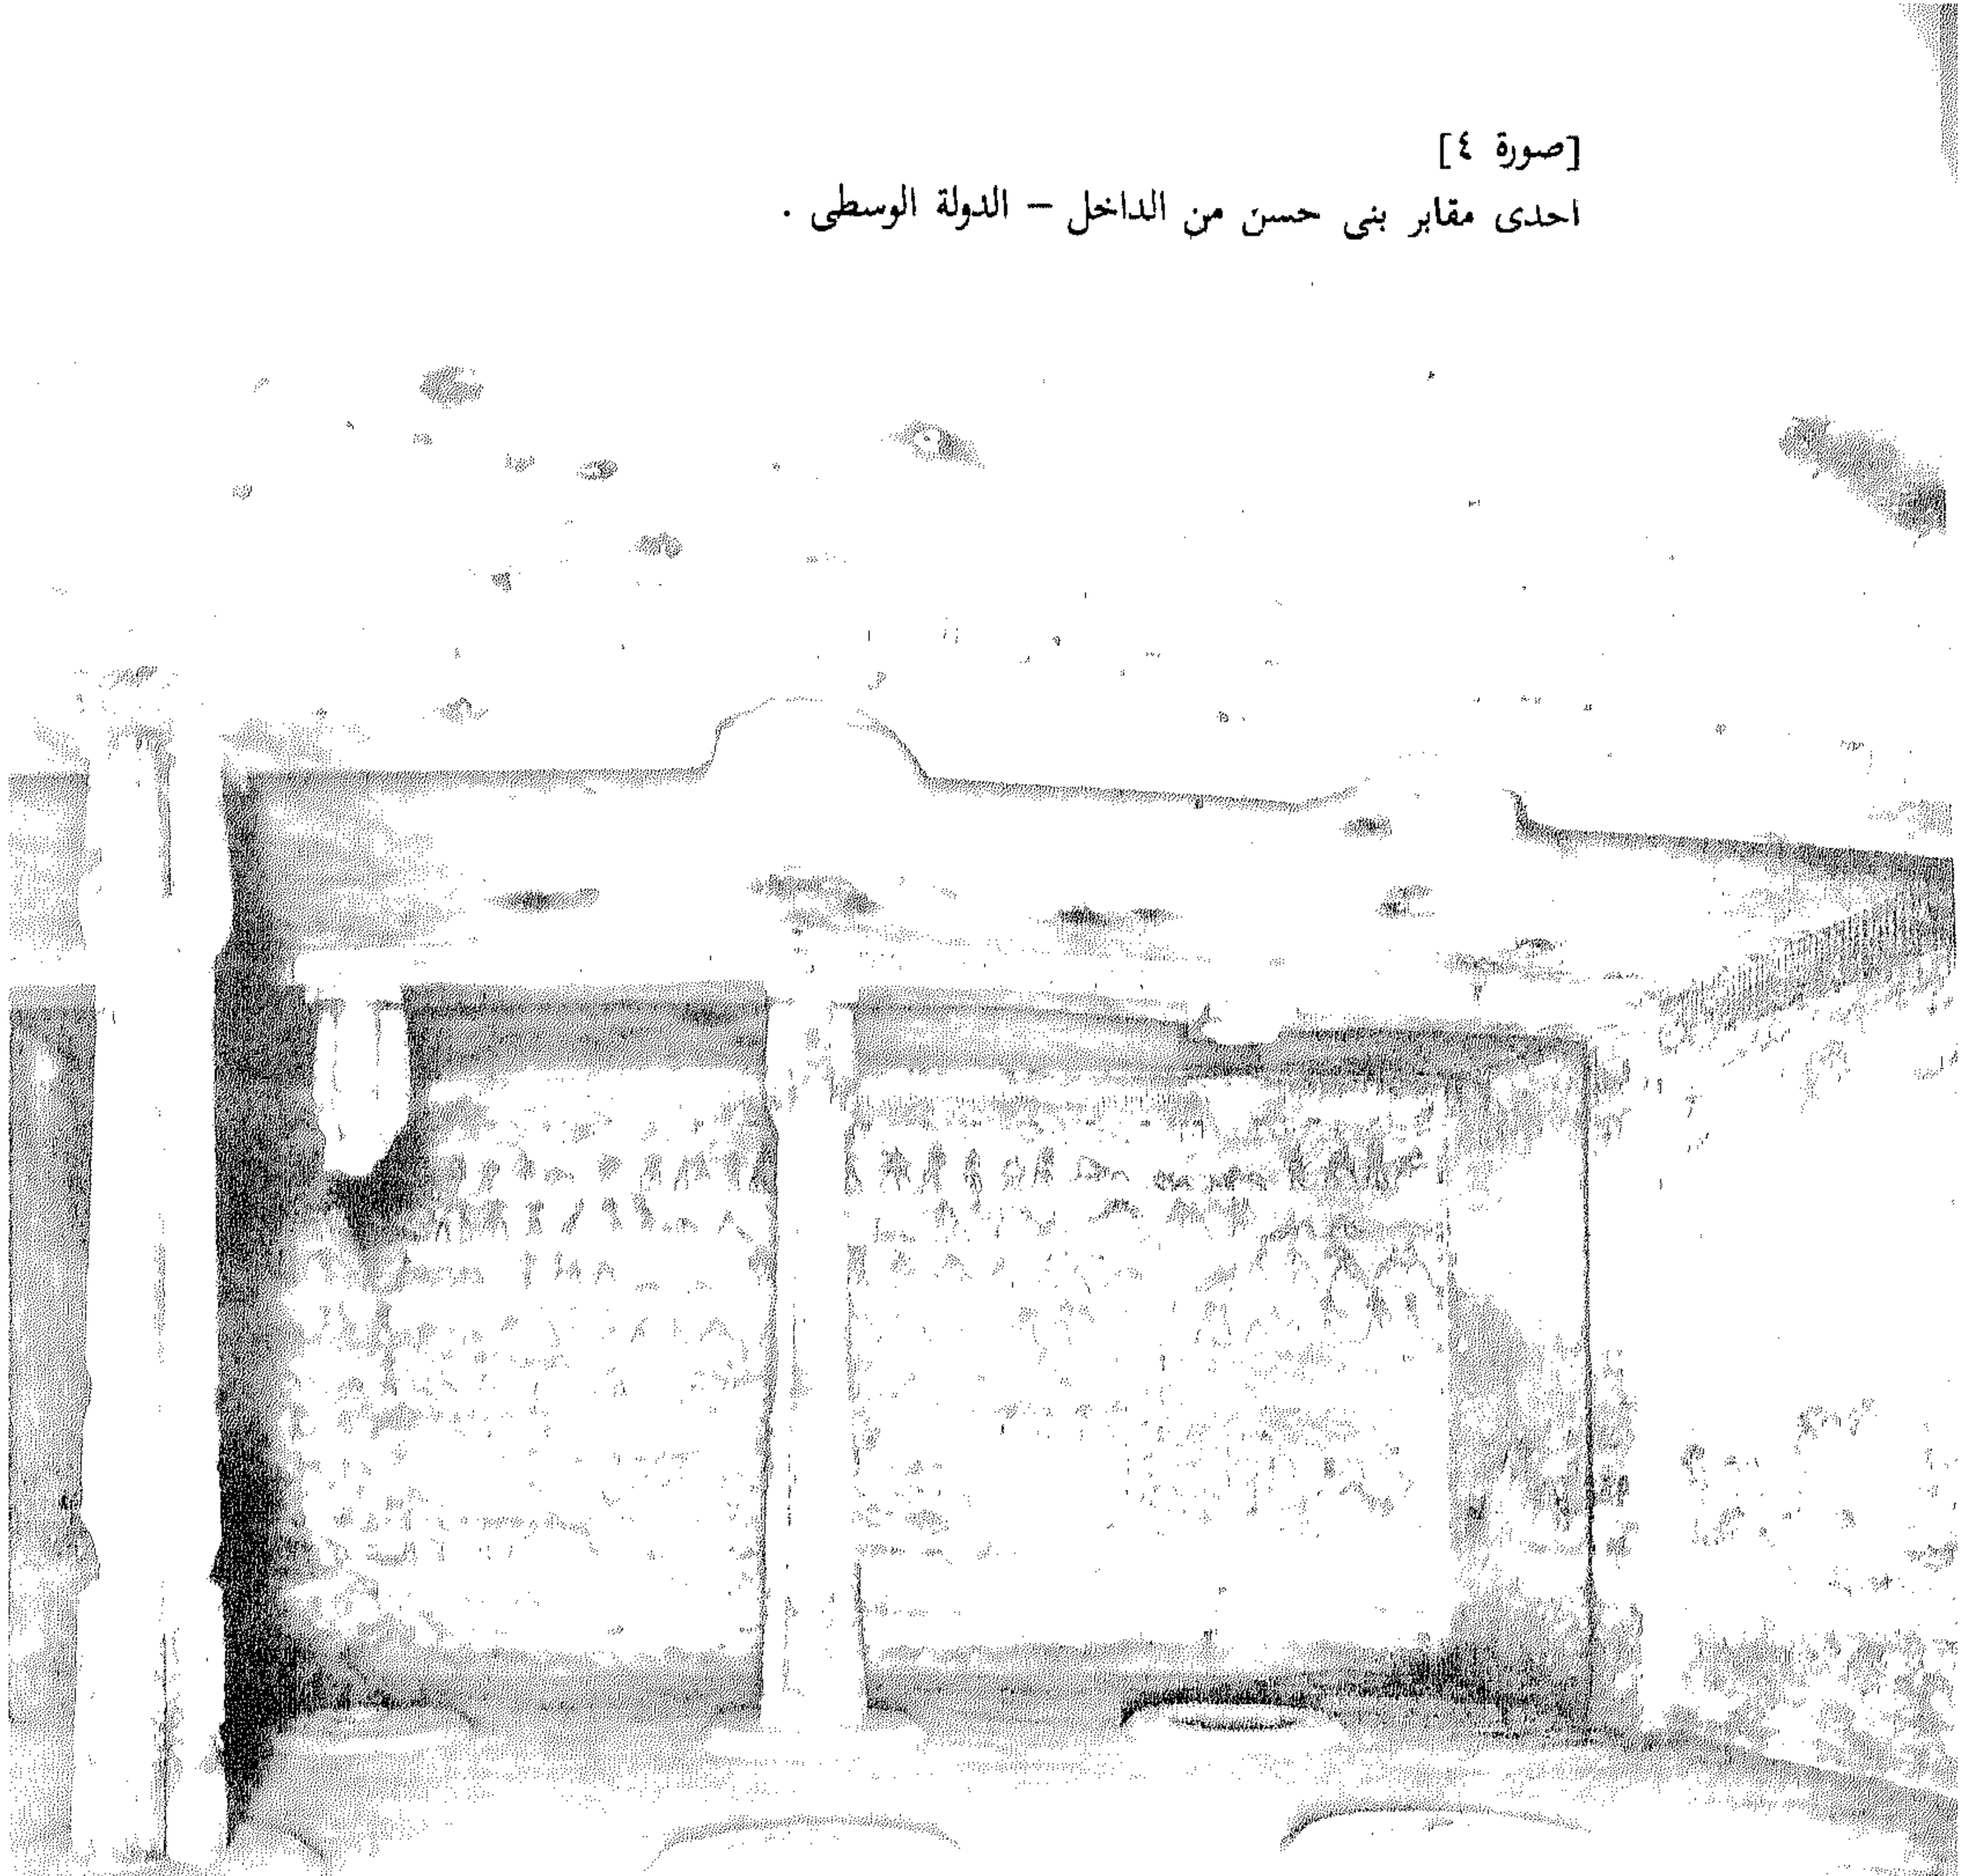 [صورة ٤]
احدى مقابر بنى حسن من الداخل – الدولة الوسطى .